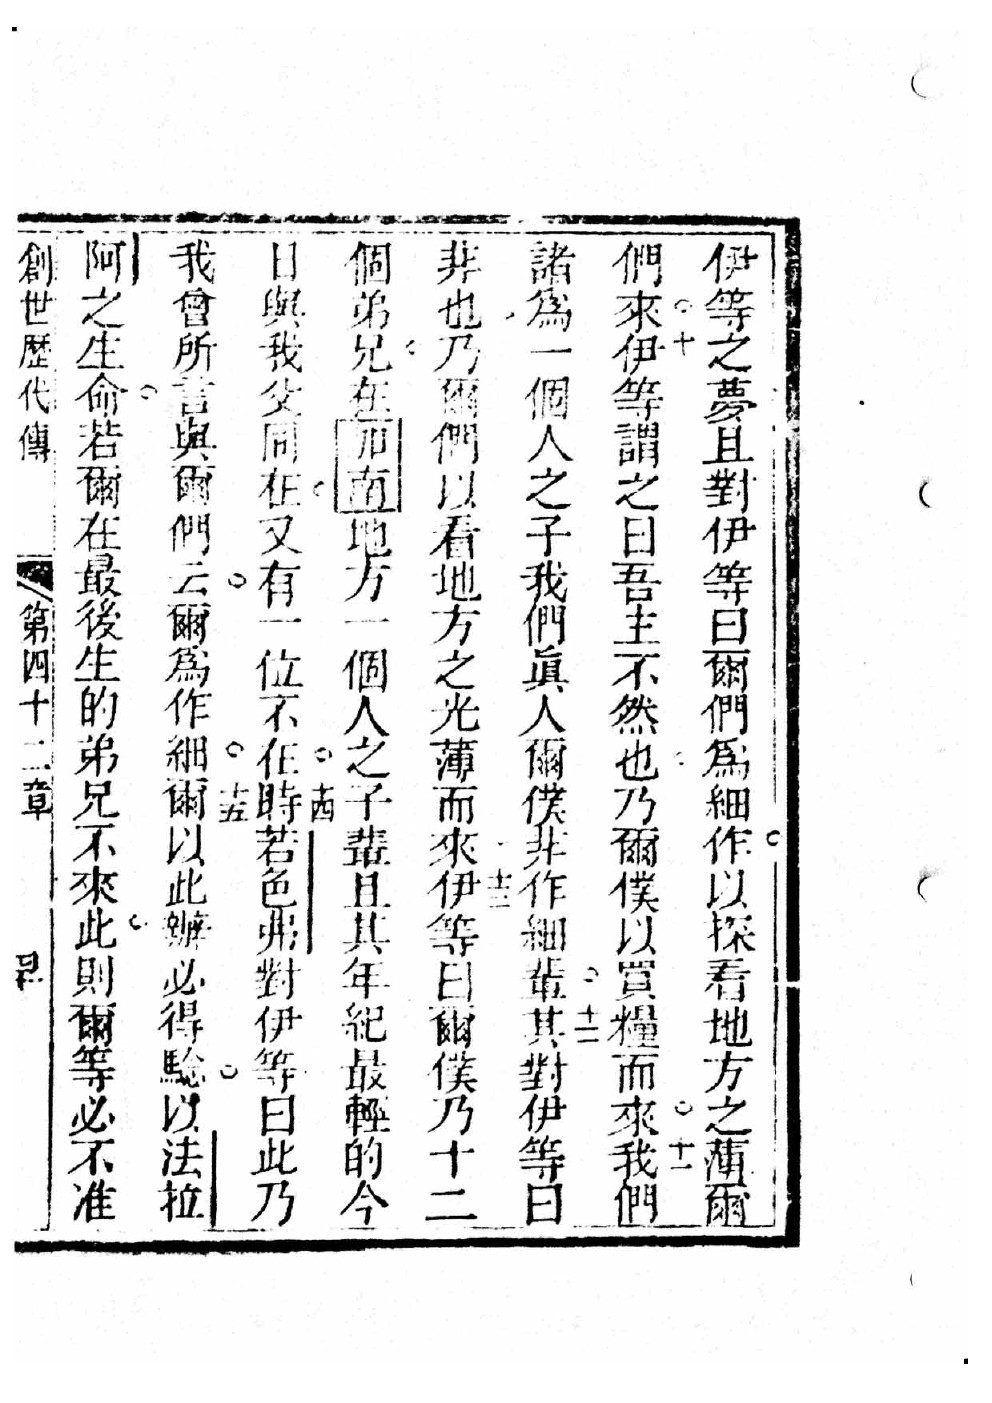 伊等之夢且對伊等曰爾們為細作以探看地方之薄爾
們來十伊等謂之曰吾主不然也乃爾僕以買糧而來十一我們
諸為一個人之子我們眞人爾僕非作細輩十二其對伊等曰
非也乃爾們以看地方之光薄而來十三伊等曰爾僕乃十二
個弟兄在加南地方一個人之子輩且其年紀最輕的今
日與我父同在又有一位不在時十四若色弗對伊等曰此乃
我曾所言與爾們云爾爲作細十五爾以此辦必得驗以法拉
阿之生命若爾在最後生的弟兄不來此則爾等必不准
創世歷代傳 第四十二章